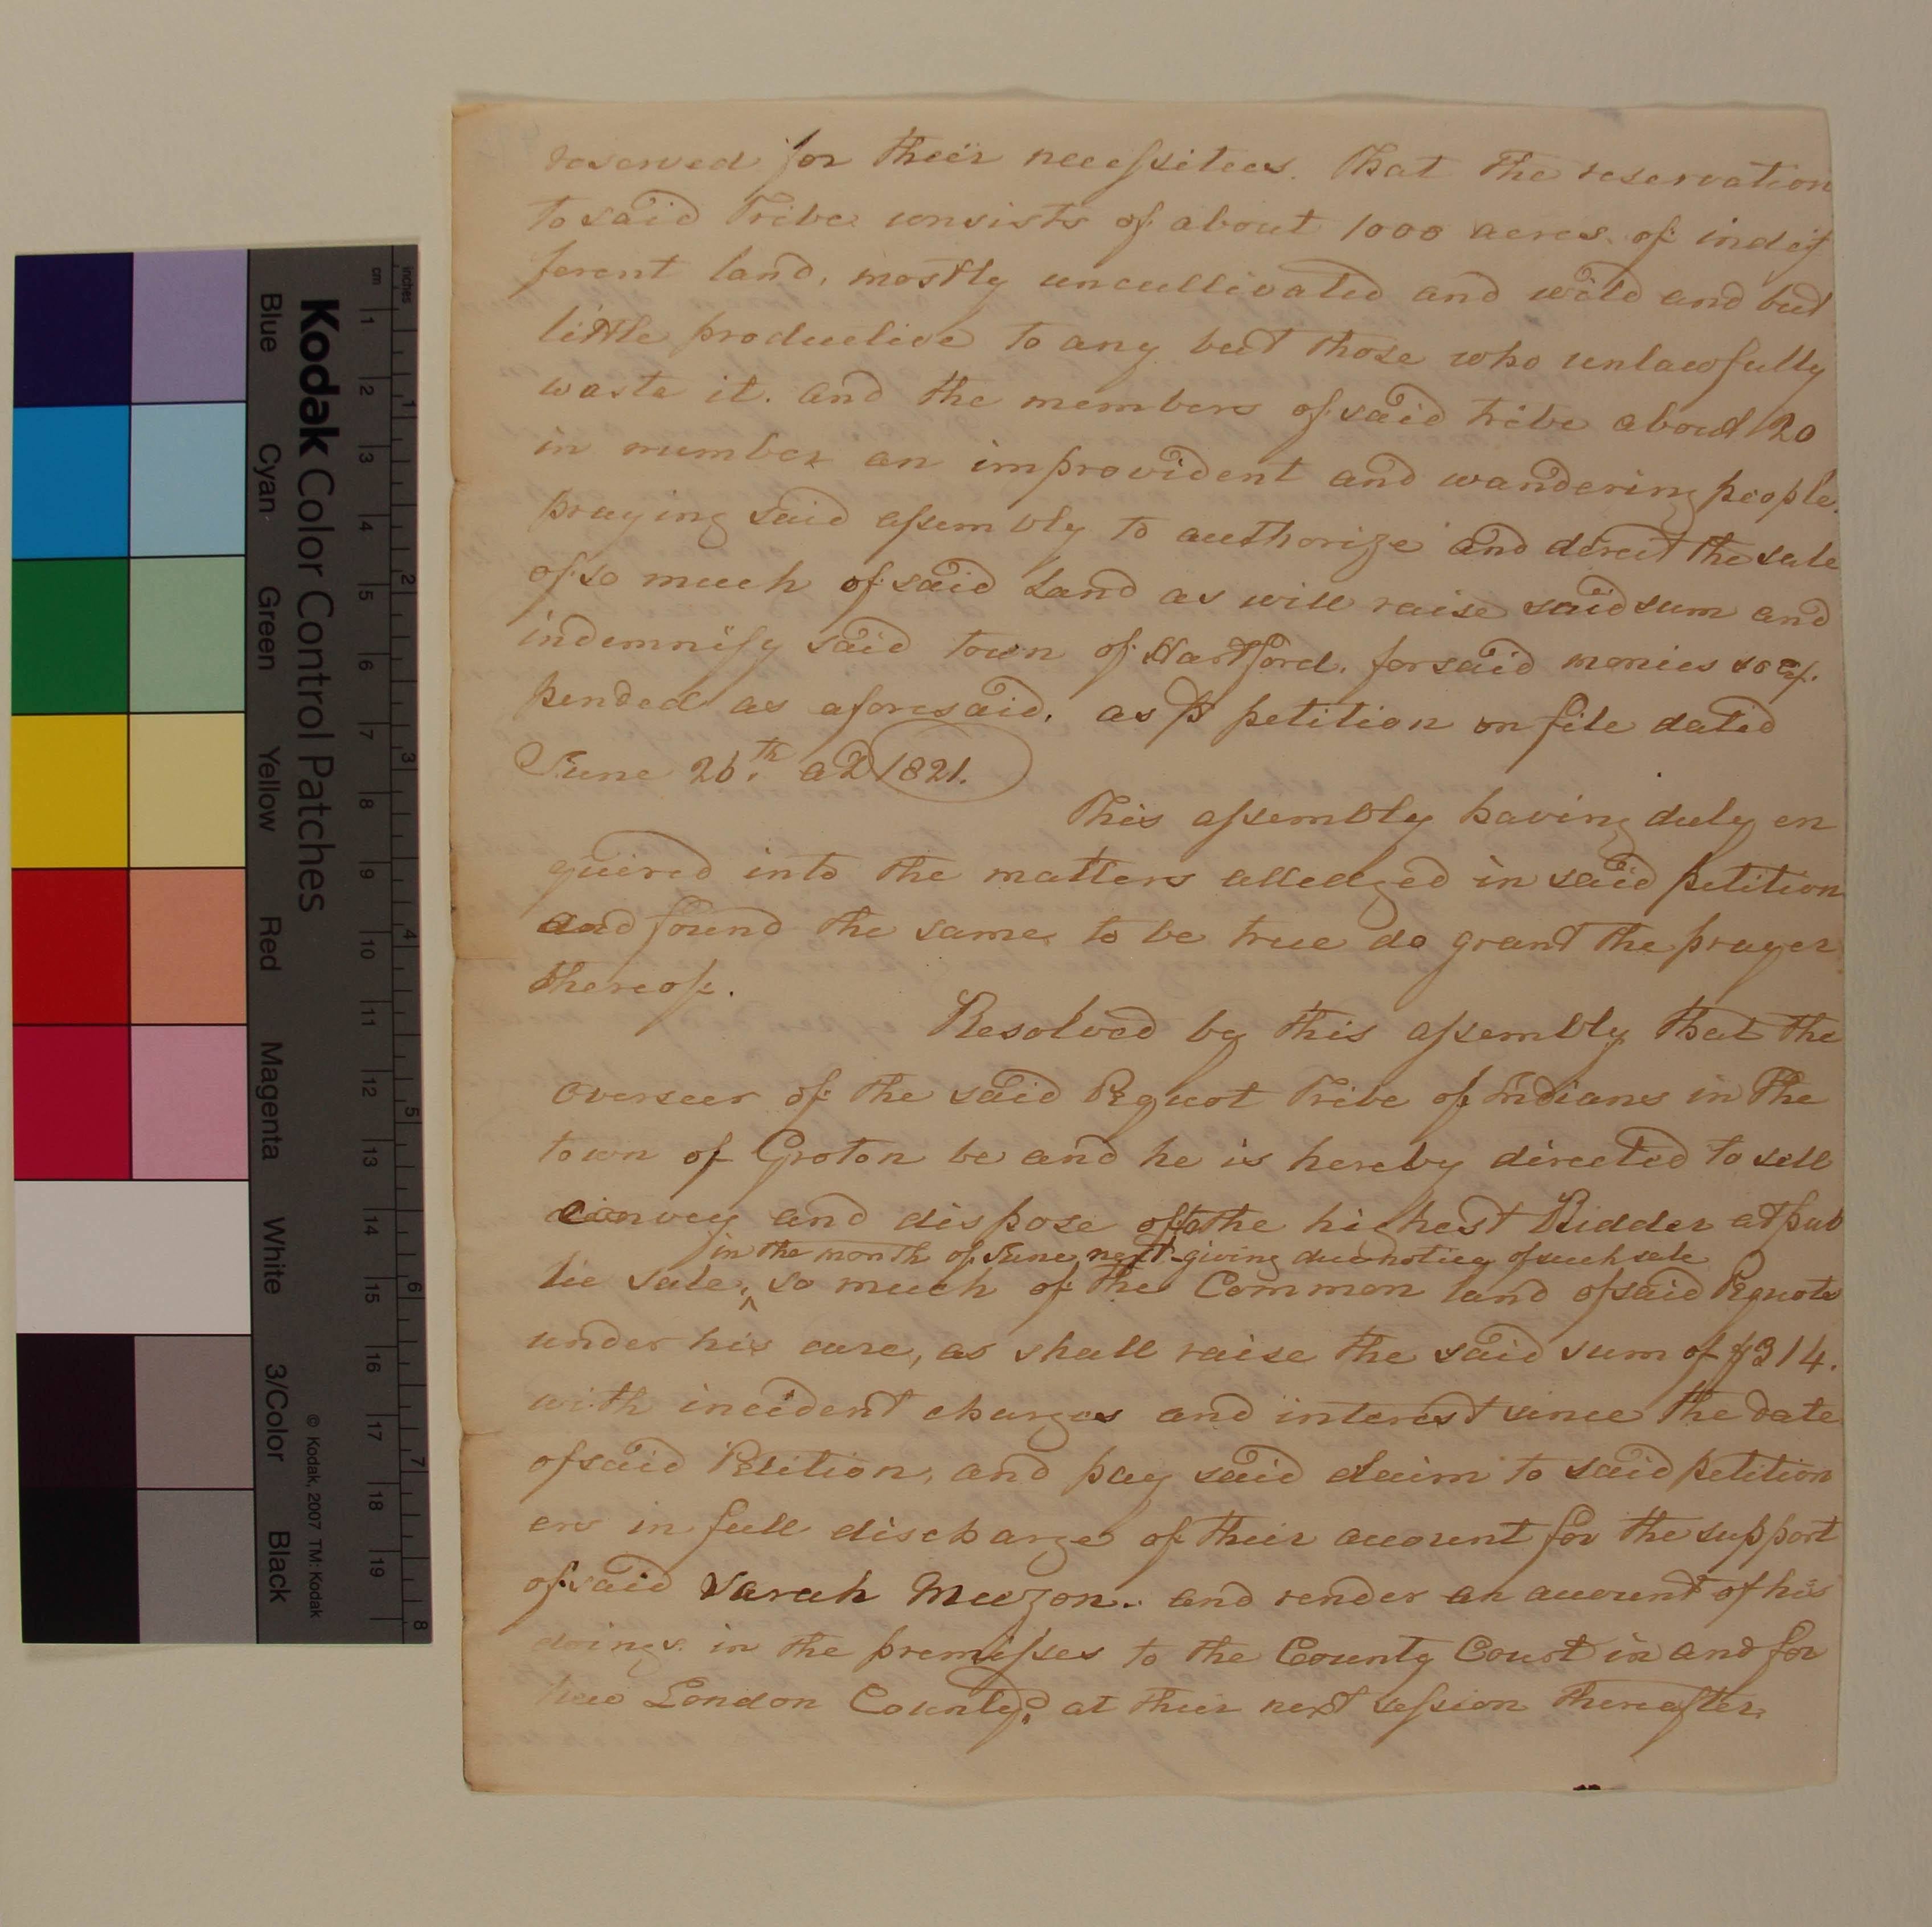 reserved for their necessitees. That the reservation
to said Tribe consists of about 1000 acres of indif
ferent land, mostly uncultivated and wild and but
little productive to any but those who unlawfully
waste it. and the members of said tribe about 20
in number an improvident and wandering people.
praying said assembly to authorize and direct the sale
of so much of said Land as will raise said sum and
indemnify said town of Hartford, for said monies so ex
pended as aforesaid, as pr petition on file dated
June 26th. AD 1821.
This assembly having duly en
quired into the matters alledged in said petition
and found the same to be true do grant the prayer
thereof.
Resolved by this assembly that the
overseer of the said Pequot Tribe of Indians in the
town of Groton be and he is hereby directed to sell
convey and dispose of to the highest Bidder at pub
in the month of June next giving due notice of such sale
lic sale, ^ so much of the Common land of said Pequots
under his care, as shall raise the said sum of $314.
with incident charges and interest since the date
of said Petition, and pay said claim to said petition
ers in full discharge of their account for the support
of said Sarah Meuzon. and render an account of his
doings in the premisses to the County Court in and for
New London County, at their next session thereafter.
Kodak Color Control Patches
Blue Cyan Green Yellow Red Magenta White 3/Color Black
© Kodak, 2007 TM: Kodak
cm 1 2 3 4 5 6 7 8 9 10 11 12 13 14 15 16 17 18 19
inches 1 2 3 4 5 6 7 8